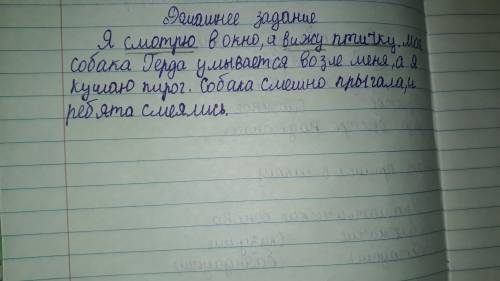 Домашнее задание
Я смотрю в окно, я вижу птичку. Моя
собака Герда умывается возле меня, а я
кушаю пирог. Собака смешно прыгала, и
ребята смеялись.